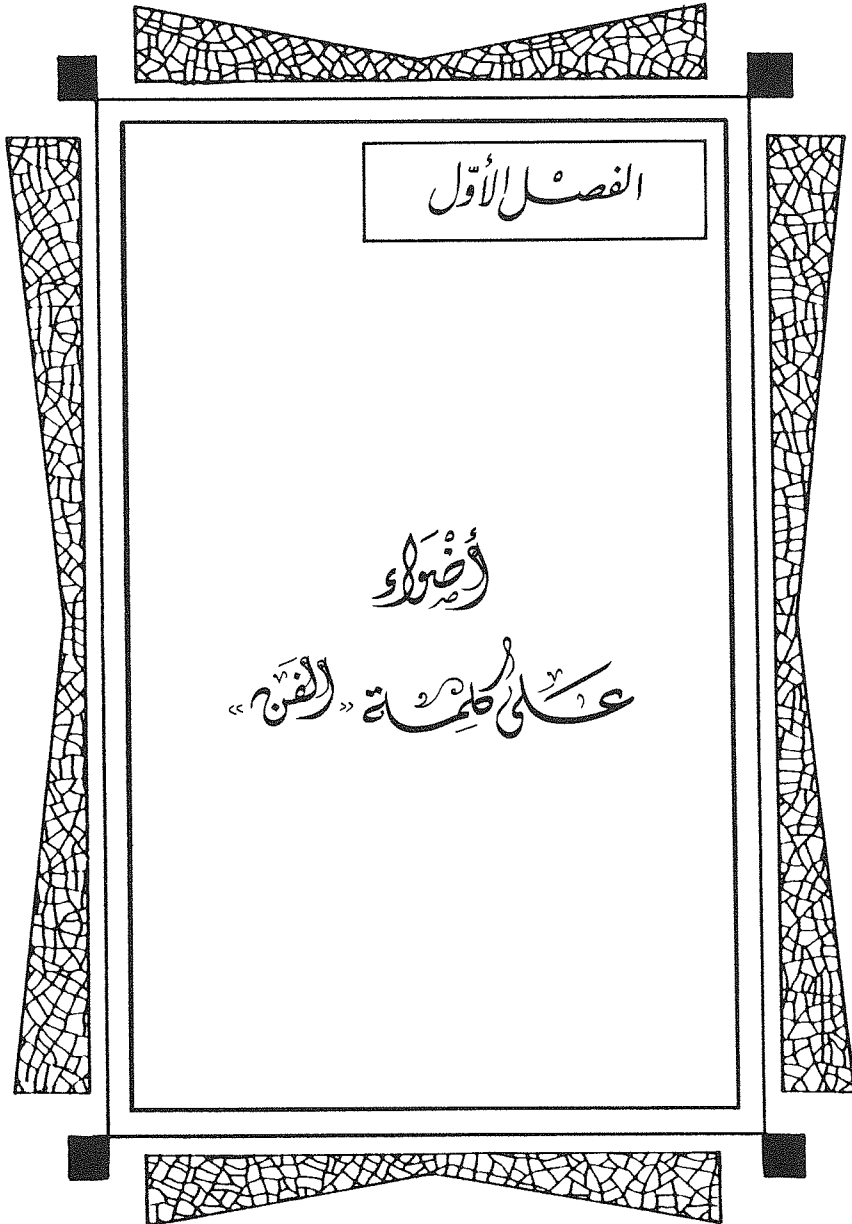 الفصل الأوّل
أضواء
على كلمة «الفن»